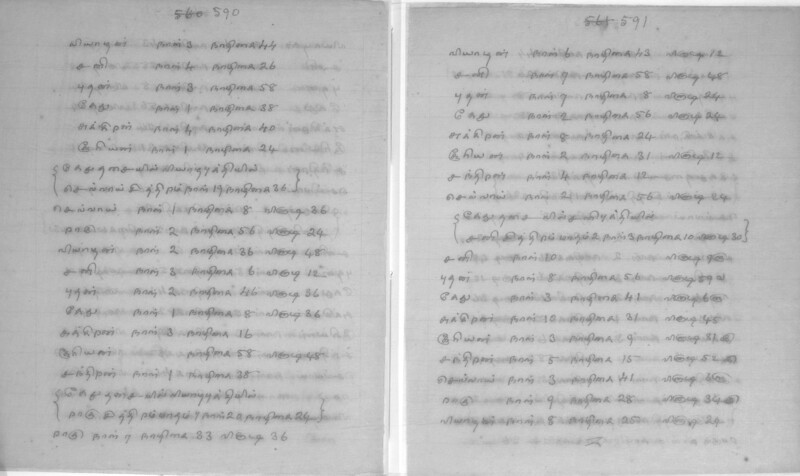 560 590
வியாழன் நாள் 3 நாழிகை 44
சனி நாள் 4 நாழிகை 26
புதன் நாள் 3 நாழிகை 58
கேது நாள் 1 நாழிகை 38
சுக்கிரன் நாள் 4 நாழிகை 40
சூரியன் நாள் 1 நாழிகை 24
கேதுதசையில்
செவ்வாய் நாள் 19 நாழிகை 36
செவ்வாய் நாள் 1 நாழிகை 8 வினாடி 36
ராகு நாள் 2 நாழிகை 56 வினாடி 24
வியாழன் நாள் 2 நாழிகை 36 வினாடி 48
சனி நாள் 3 நாழிகை 6 வினாடி 12
புதன் நாள் 2 நாழிகை 46 வினாடி 36
கேது நாள் 1 நாழிகை 8 வினாடி 36
சுக்கிரன் நாள் 3 நாழிகை 16
சூரியன் நாழிகை 58 வினாடி 48
சந்திரன் நாள் 1 நாழிகை 38
கேதுதசையில்
ராகு நாழிகை 24
ராகு நாள் 7 நாழிகை 33 வினாடி 36
561 591
வியாழன் நாள் 6 நாழிகை 43 வினாடி 12
சனி நாள் 7 நாழிகை 58 வினாடி 48
புதன் நாள் 7 நாழிகை 8 வினாடி 24
கேது நாள் 2 நாழிகை 56 வினாடி 24
சுக்கிரன் நாள் 8 நாழிகை 24
சூரியன் நாள் 2 நாழிகை 31 வினாடி 12
சந்திரன் நாள் 4 நாழிகை 12
செவ்வாய் நாள் 2 நாழிகை 56 வினாடி 24
கேதுதசையில்
சனி நாள் 3 நாழிகை 10 வினாடி 30
சனி நாள் 10 வினாடி
புதன் நாள் 8 நாழிகை 56 வினாடி
கேது நாள் 3 நாழிகை 41 வினாடி
சுக்கிரன் நாள் 10 நாழிகை 31 வினாடி
சூரியன் நாள் 3 நாழிகை 9 வினாடி
சந்திரன் நாள் 5 நாழிகை 15 வினாடி
செவ்வாய் நாள் 3 நாழிகை 41 வினாடி
ராகு நாள் 9 நாழிகை 28 வினாடி
வியாழன் நாள் 8 நாழிகை 25 வினாடி 24